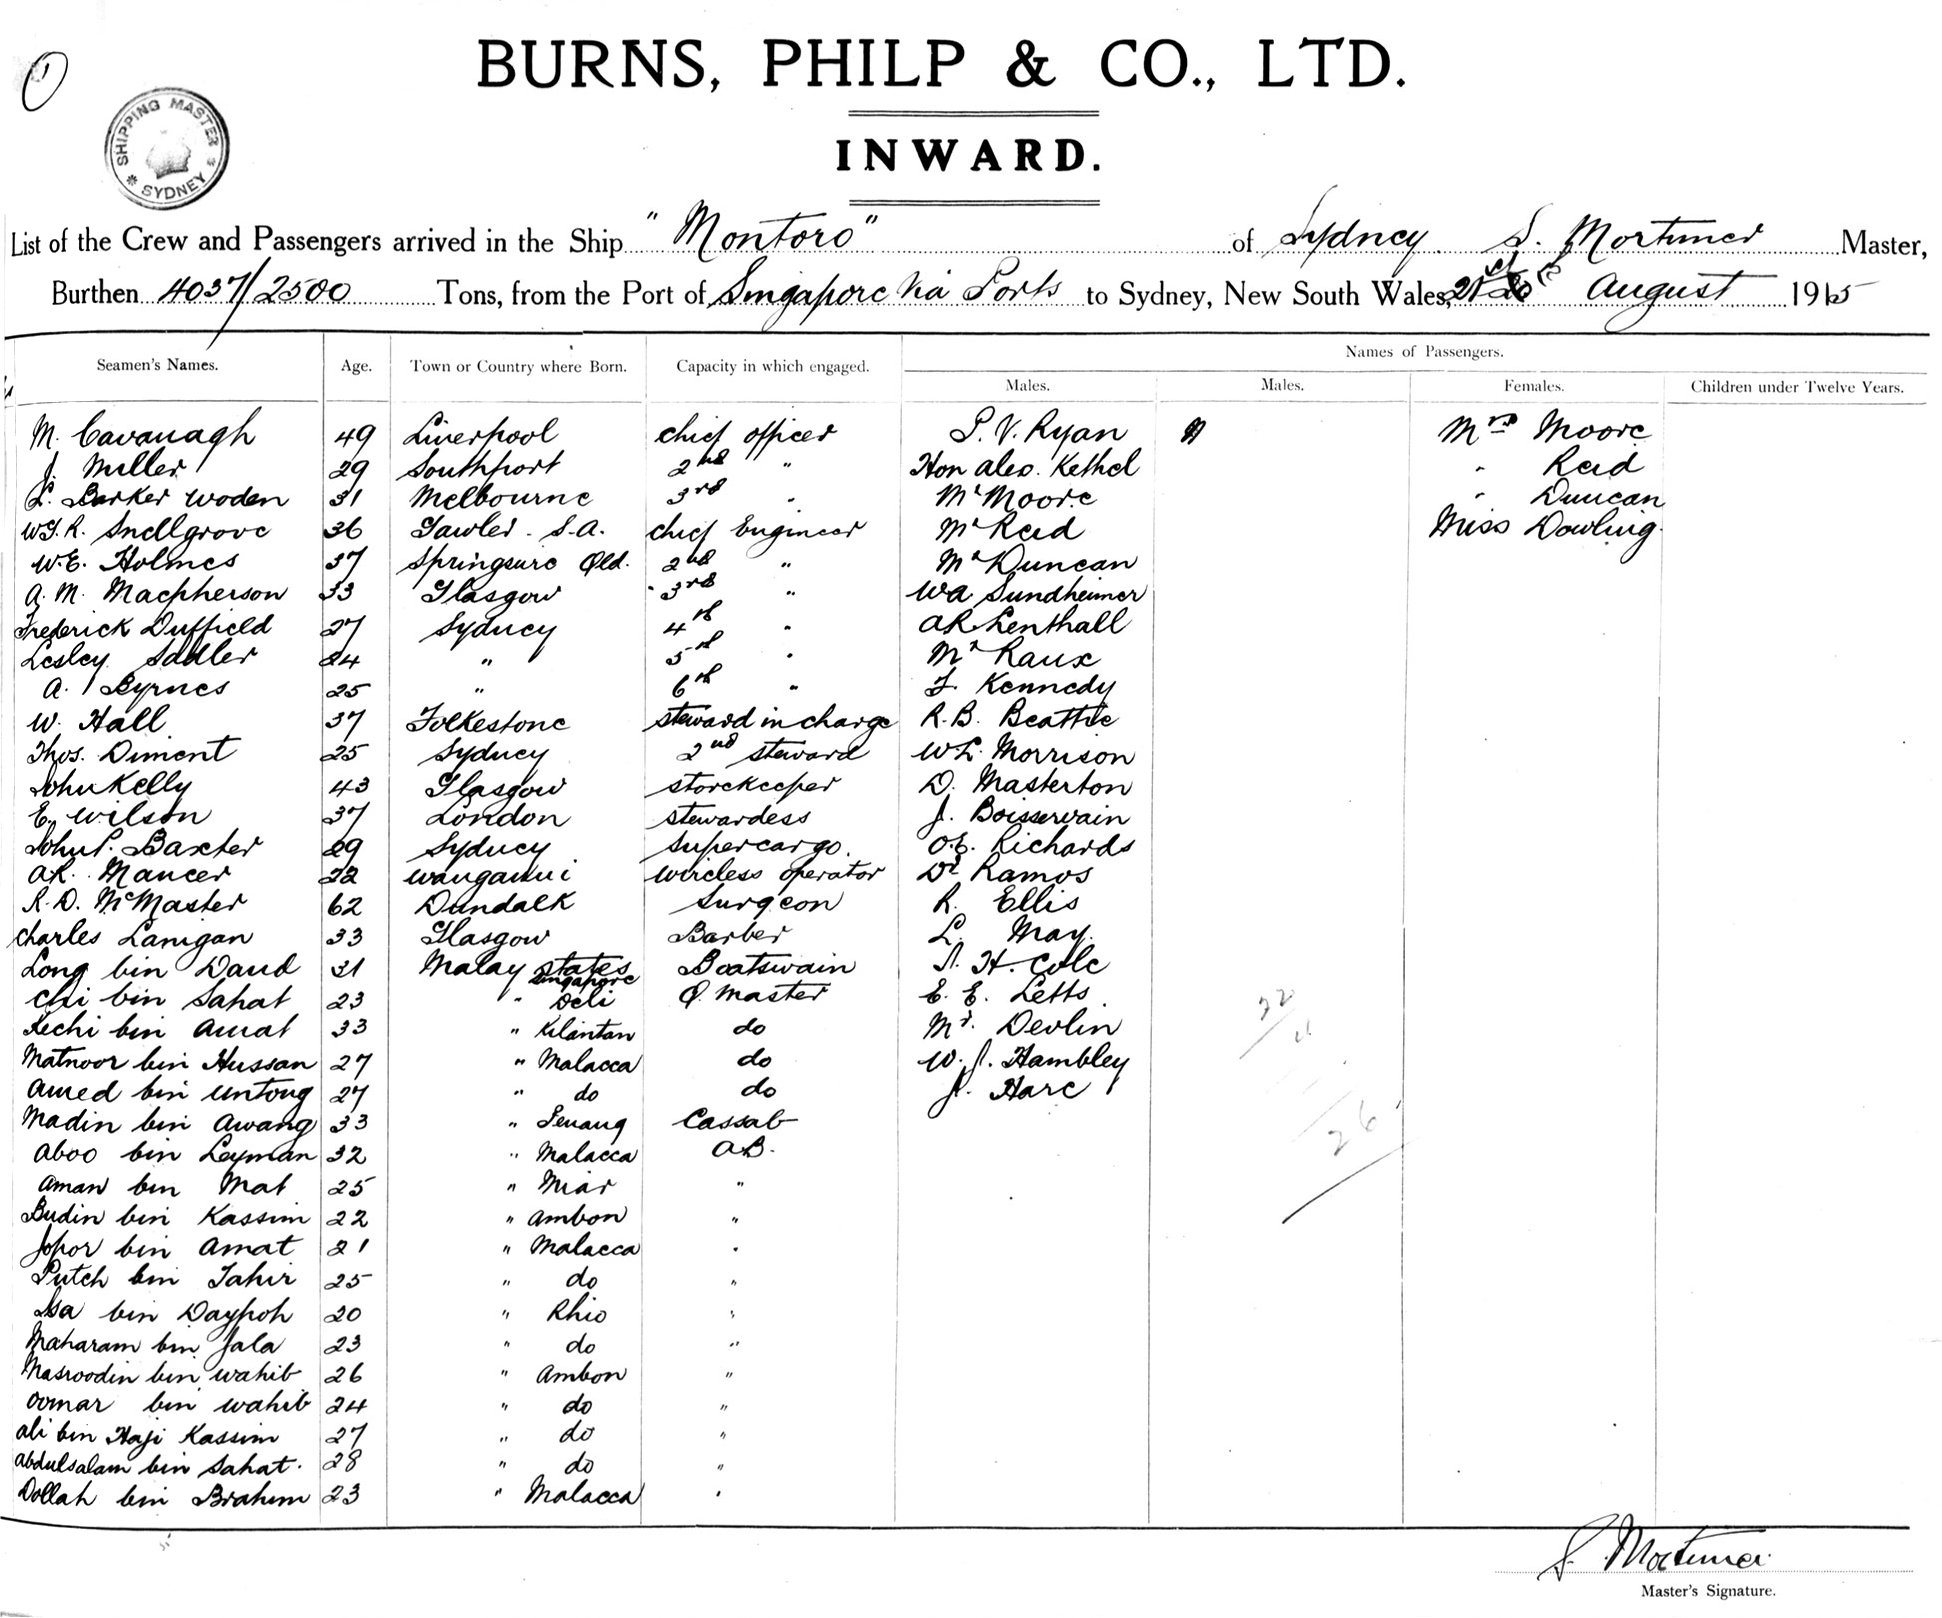 1
SHIPPING MASTER
SYDNEY
BURNS, PHILP & CO., LTD.
INWARD.
List of the Crew and Passengers arrived in the Ship "Montoro" of Sydney. S. Mortimer Master,
Burthen 4037/2500 Tons, from the Port of Singapore via Ports to Sydney, New South Wales, 21st August 1915
Seamen's Names. Age. Town or Country where Born. Capacity in which engaged. Names of Passengers.
Males. Males. Females. Children under Twelve Years.
M. Cavanagh 49 Liverpool chief officer P. V. Ryan Mrs Moore
J. Miller 29 Southport 2nd " Hon Alex. Kethel " Reid
L. Barker Woden 31 Melbourne 3rd " Mr Moore " Duncan
W.J.R. Snellgrove 36 Gawler. S.A. chief Engineer Mr Reid Miss Dowling.
W.E. Holmes 37 Springsure Qld. 2nd " Mr Duncan
A. M. Macpherson 33 Glasgow 3rd " WA Sundheimer
Frederick Duffield 27 Sydney 4th " AR Lenthall
Lesley Sadler 24 " 5th " Mr Raux
A. Byrnes 25 " 6th " F. Kennedy
W. Hall 37 Folkestone steward in charge R. B. Beattie
Thos. Diment 25 Sydney 2nd steward WL Morrison
John Kelly 43 Glasgow storekeeper D. Masterton
E. Wilson 37 London stewardess J. Boissevain
John P. Baxter 29 Sydney supercargo. O.E. Richards
AR. Mancer 22 Wanganui wireless operator Dr Ramos
R. D. McMaster 62 Dundalk Surgeon R. Ellis
Charles Lanigan 33 Glasgow Barber L. May.
Long bin Daud 31 Malay States Singapore Boatswain A. H. Cole
Chi bin Sahat 23 " Deli Q. Master E. E. Letts.
Kechi bin Amat 33 " Kilantan do Mr. Devlin
Matnoor bin Hussan 27 " Malacca do W. J. Hambley
Amed bin Untong 27 " do do J. Hare
Madin bin Awang 33 " Penang Cassab
Aboo bin Leyman 32 " Malacca A.B.
Aman bin Mat 25 " Niar "
Budin bin Kassim 22 " Ambon "
Jopor bin Amat 21 " Malacca "
Putch bin Tahir 25 " do "
Isa bin Daypoh 20 " Rhio "
Maharam bin Jala 23 " do "
Masroodin bin Wahib 26 " Ambon "
Oomar bin Wahib 24 " do "
Ali bin Haji Kassim 27 " do "
Abdulsalam bin Sahat. 28 " do "
Dollah bin Brahim 23 " Malacca "
22
4
26
S. Mortimer.
Master's Signature.